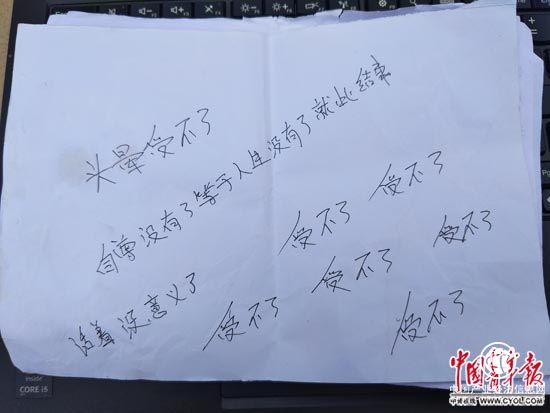 头晕受不了
自尊没有了等于人生没有了就此结束
受不了
受不了
受不了
活着没意义了
受不了
受不了
受不了
inside
CORE i5
中国青年报
中青在线 WWW.CYOL.COM